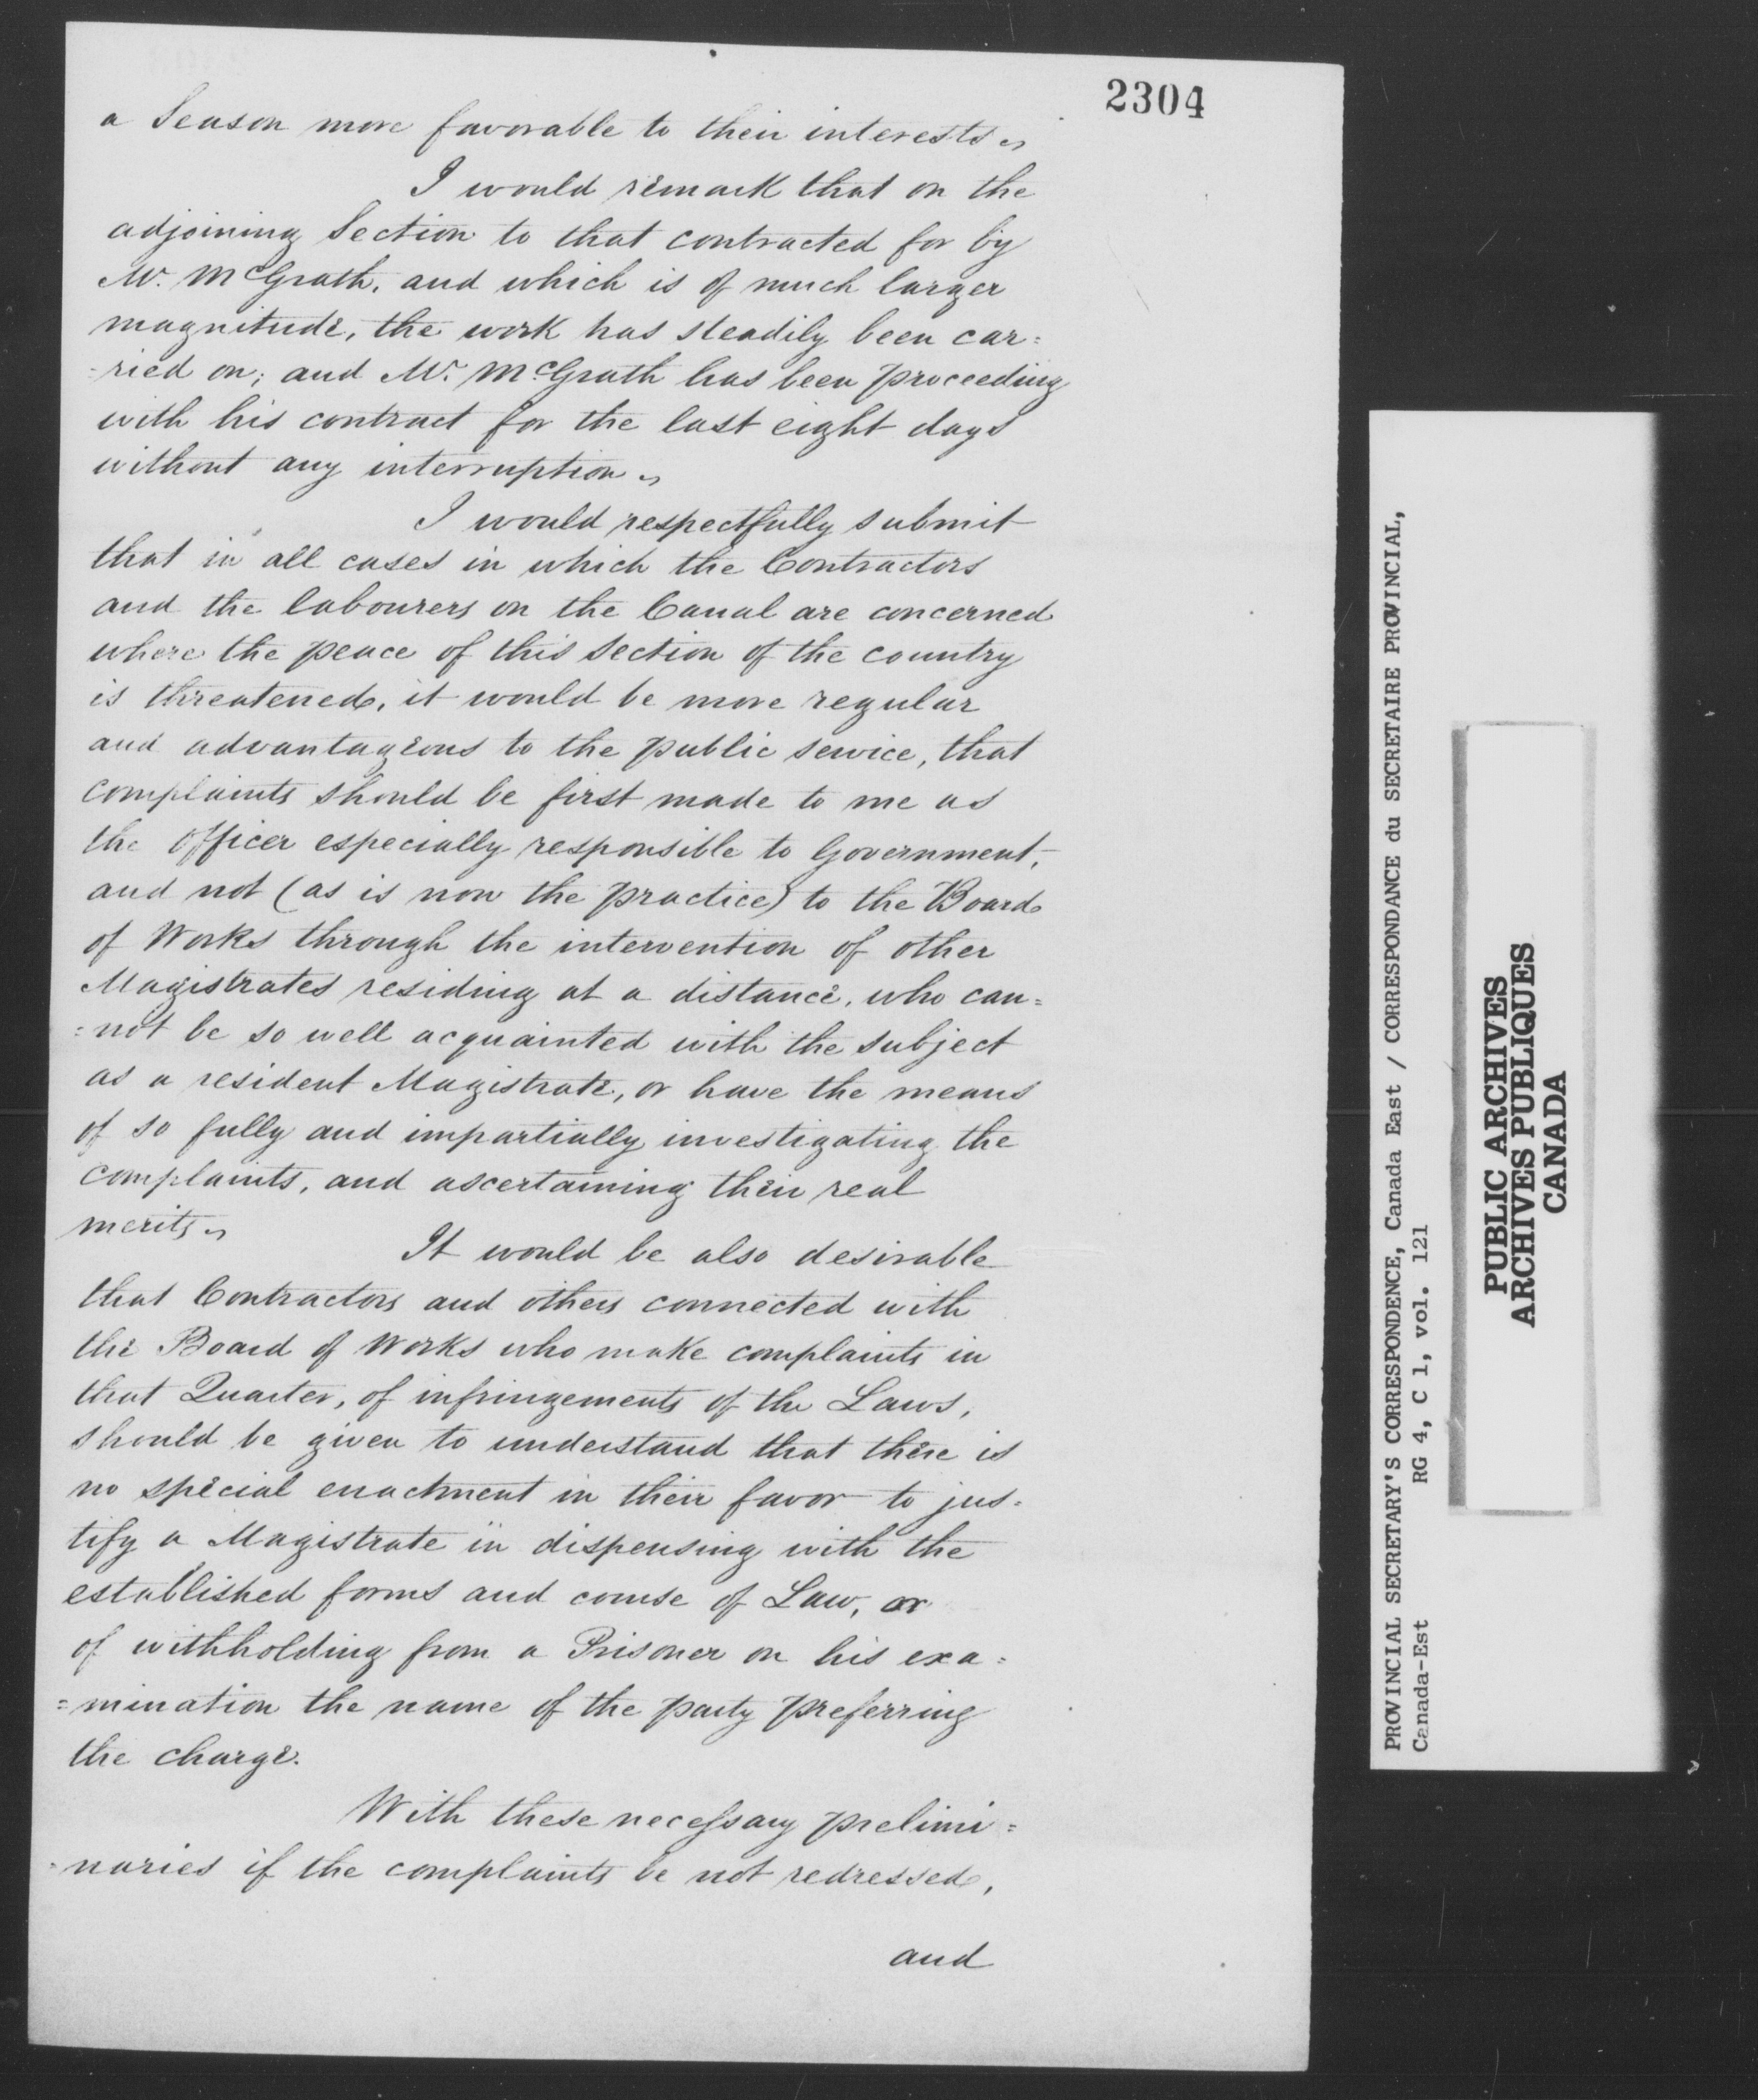 2304
a Season more favorable to their interests.
I would remark that on the
adjoining Section to that contracted for by
Mr. McGrath, and which is of much larger
magnitude, the work has steadily been car=
=ried on; and Mr. McGrath has been proceeding
with his contract for the last eight days
without any interruption.
I would respectfully submit
that in all cases in which the Contractors
and the labourers on the Canal are concerned
where the peace of this Section of the country
is threatened, it would be more regular
and advantageous to the public service, that
complaints should be first made to me as
the Officer especially responsible to Government,
and not (as is now the practice) to the Board
of Works through the intervention of other
Magistrates residing at a distance, who can=
=not be so well acquainted with the subject
as a resident Magistrate, or have the means
of so fully and impartially investigating the
complaints, and ascertaining their real
merits.
It would be also desirable
that Contractors and others connected with
the Board of Works who make complaints in
that Quarter, of infringements of the Laws,
should be given to understand that there is
no special enactment in their favor to jus=
tify a Magistrate in dispensing with the
established forms and course of Law, or
of withholding from a Prisoner on his exa=
=mination the name of the party preferring
the charge.
With these necessary prelimi=
=naries if the complaints be not redressed,
and
PROVINCIAL SECRETARY'S CORRESPONDENCE, Canada East / CORRESPONDANCE du SECRETAIRE PROVINCIAL,
Canada-Est RG 4, C 1, vol. 121
PUBLIC ARCHIVES
ARCHIVES PUBLIQUES
CANADA